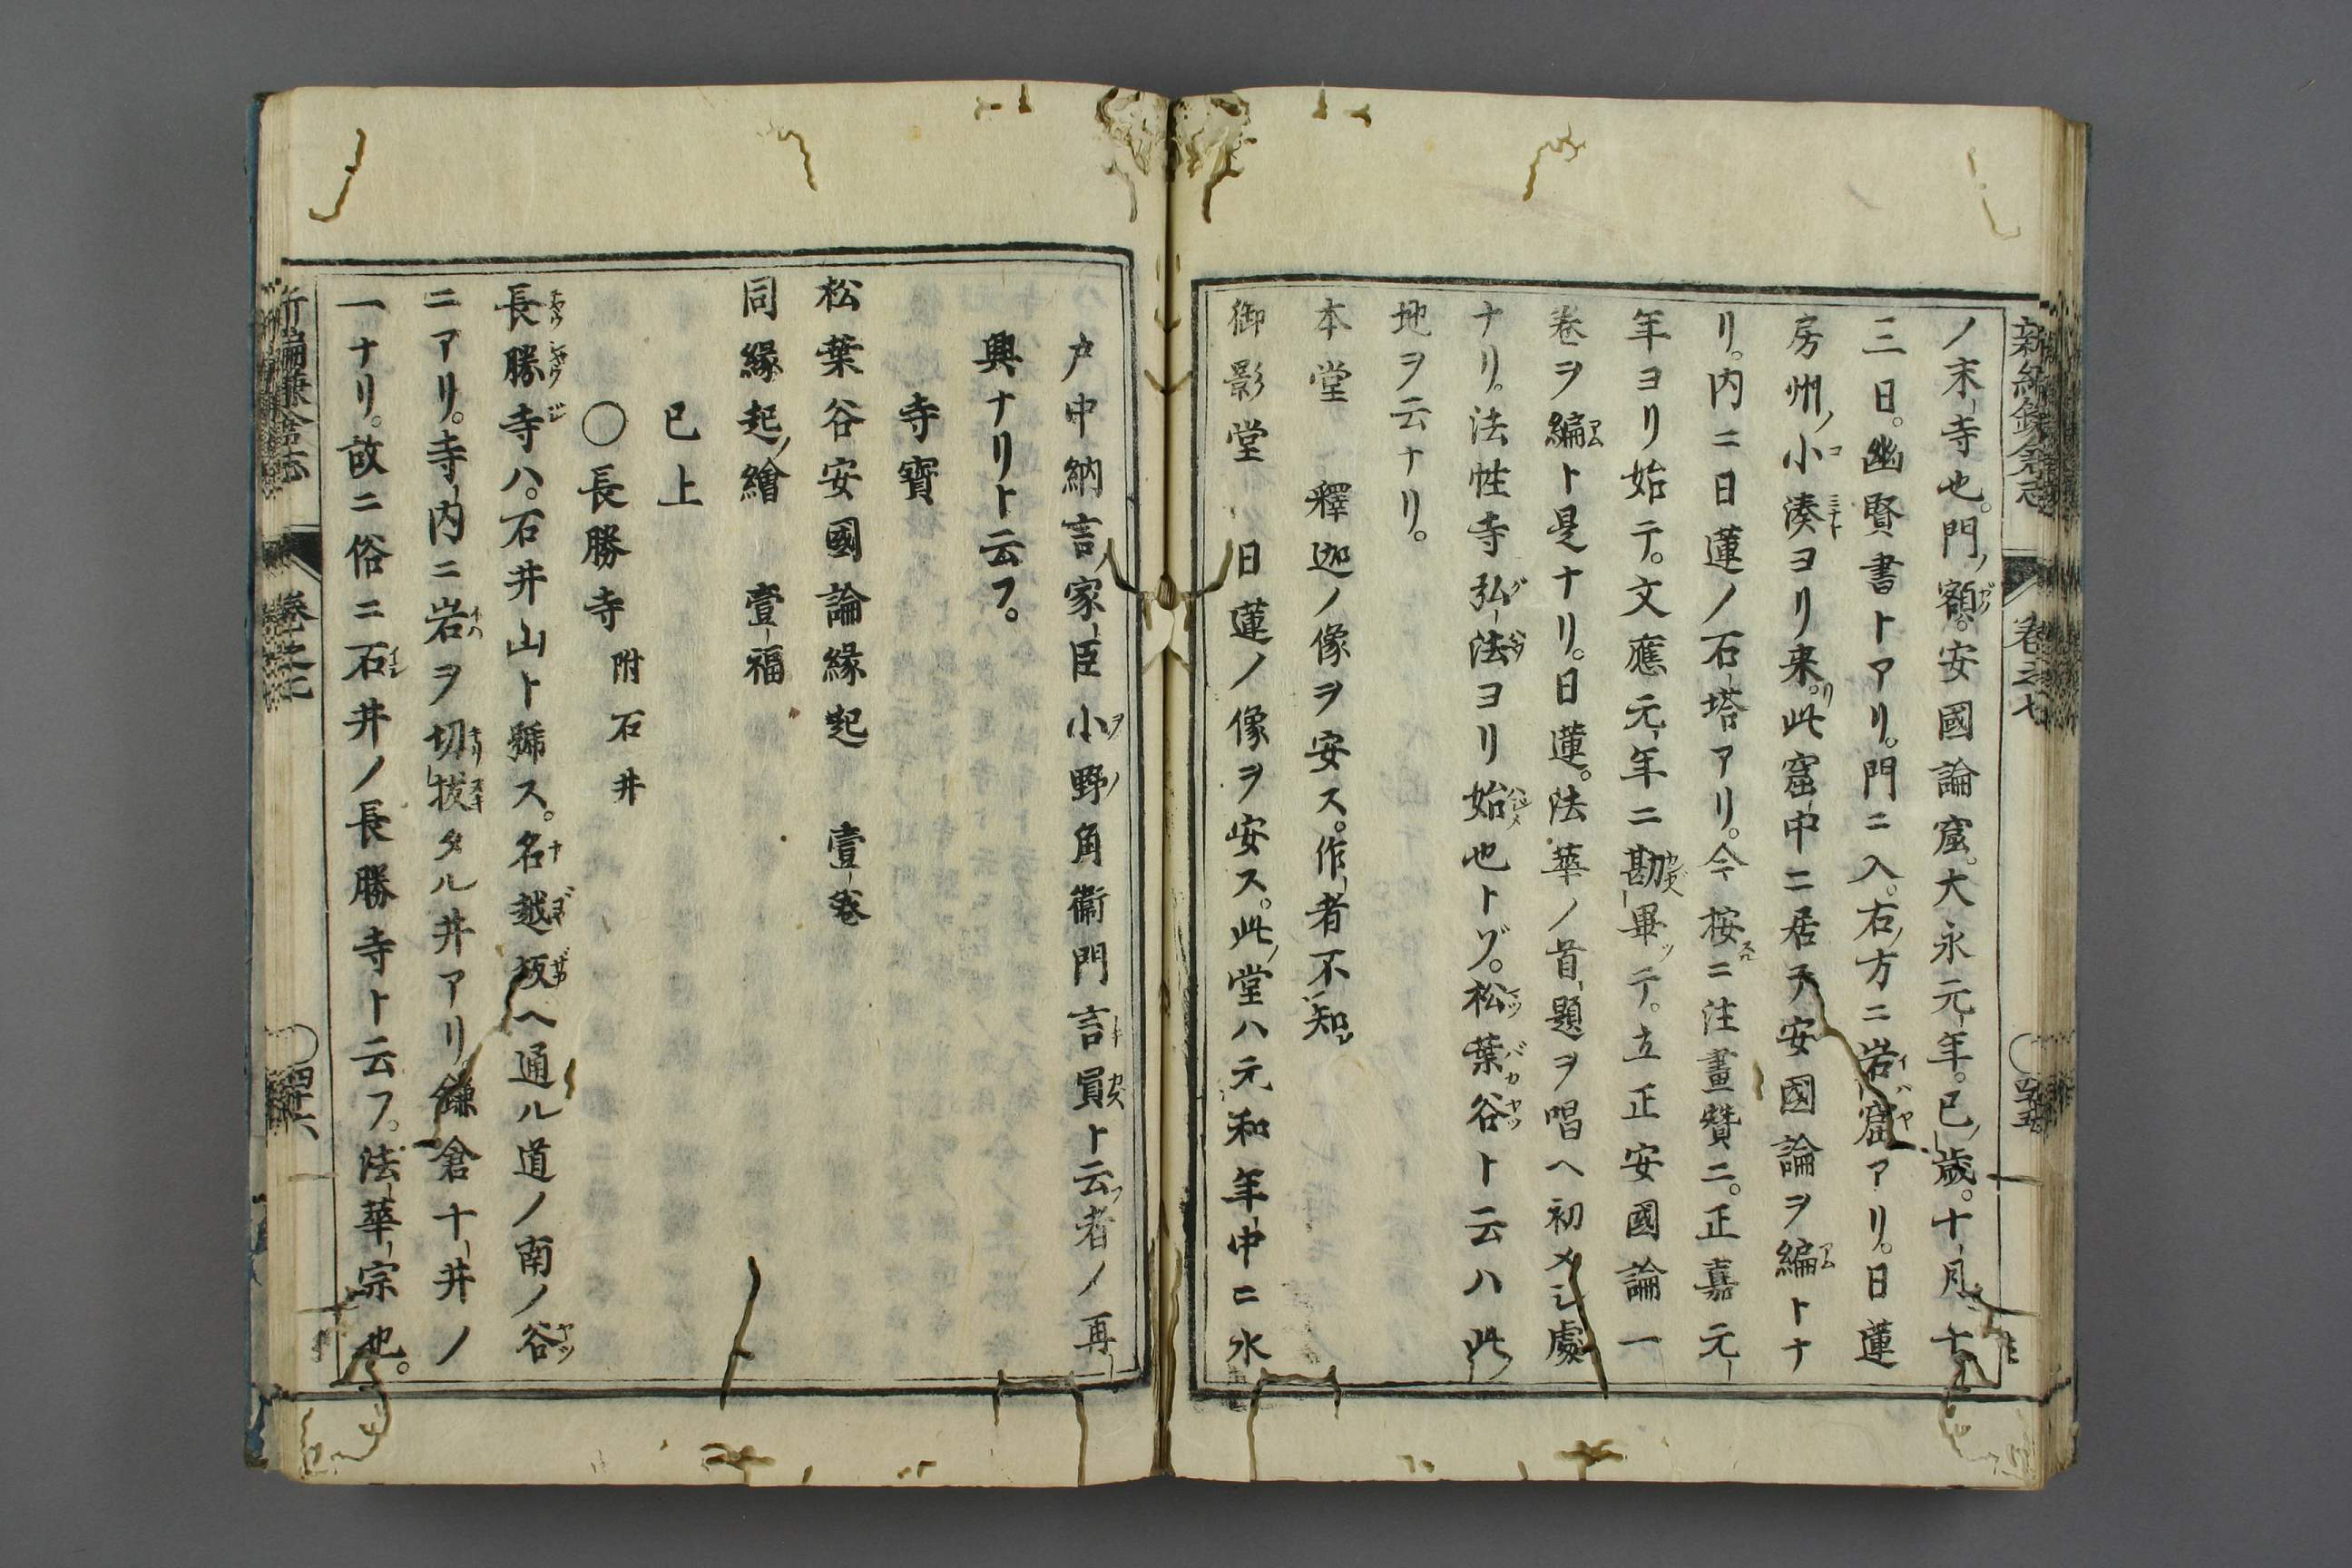 新編鎌倉志
卷之七
ノ末寺也。門ノ額。安國論窟。大永元年。巳ノ歲。十月十
三日。幽賢書トアリ。門ニ入。右ノ方ニ岩窟アリ。日蓮
房州ノ小湊ヨリ来リ。此窟中ニ居テ安國論ヲ編トナ
リ。内ニ日蓮ノ石塔アリ。今按ニ注畫贊ニ。正嘉元
年ヨリ始テ。文應元年ニ勘畢テ。立正安國論一
卷ヲ編ト是ナリ。日蓮。法華ノ首題ヲ唱ヘ初メシ處
ナリ。法性寺弘法ヨリ始也トゾ。松葉谷ト云ハ此
地ヲ云ナリ。
本堂 釋迦ノ像ヲ安ス。作者不知
御影堂 日蓮ノ像ヲ安ス。此ノ堂ハ元和年中ニ水
戶中納言ノ家臣小野角衞門言員ト云フ者ノ再
興ナリト云フ。
寺寶
松葉谷安國論緣起 壹卷
同緣起ノ繪 壹福
已上
〇長勝寺 附石井
長勝寺ハ。石井山ト號ス。名越坂ヘ通ル道ノ南ノ谷
ニアリ。寺内ニ岩ヲ切拔タル井アリ鎌倉十井ノ
一ナリ。故ニ俗ニ石井ノ長勝寺ト云フ。法華宗也。
新編鎌倉志
卷之七
四十六